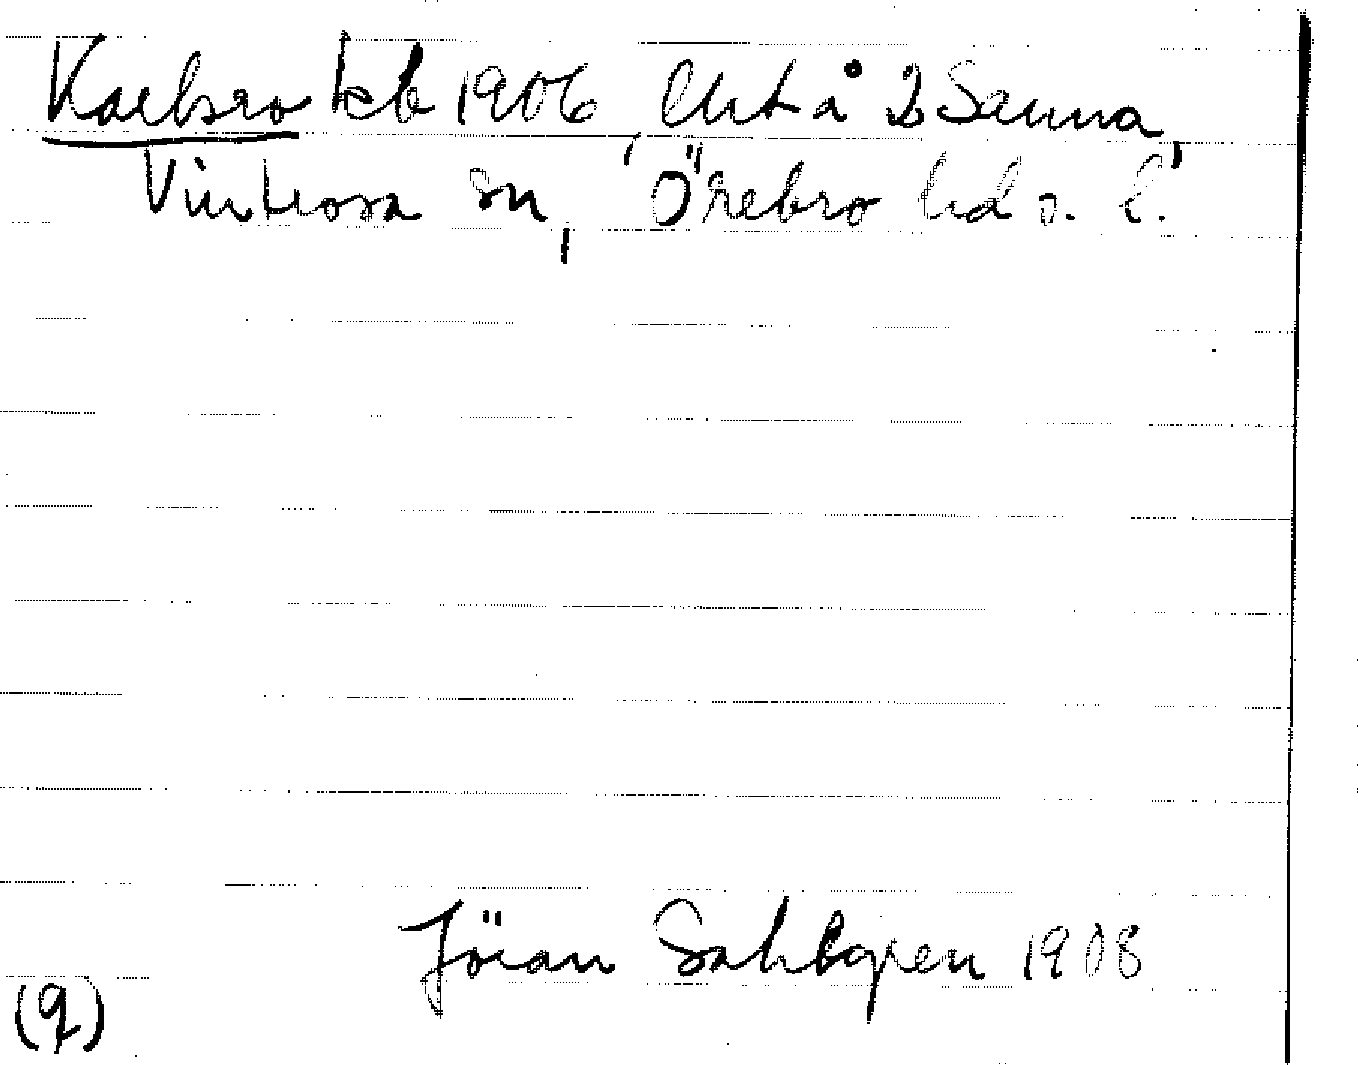 Karlsro kb 1906, Cht å 2 Sanna,
Vintrosa sn, Örebro hd o. l.
Jöran Sahlgren 1908
(q)